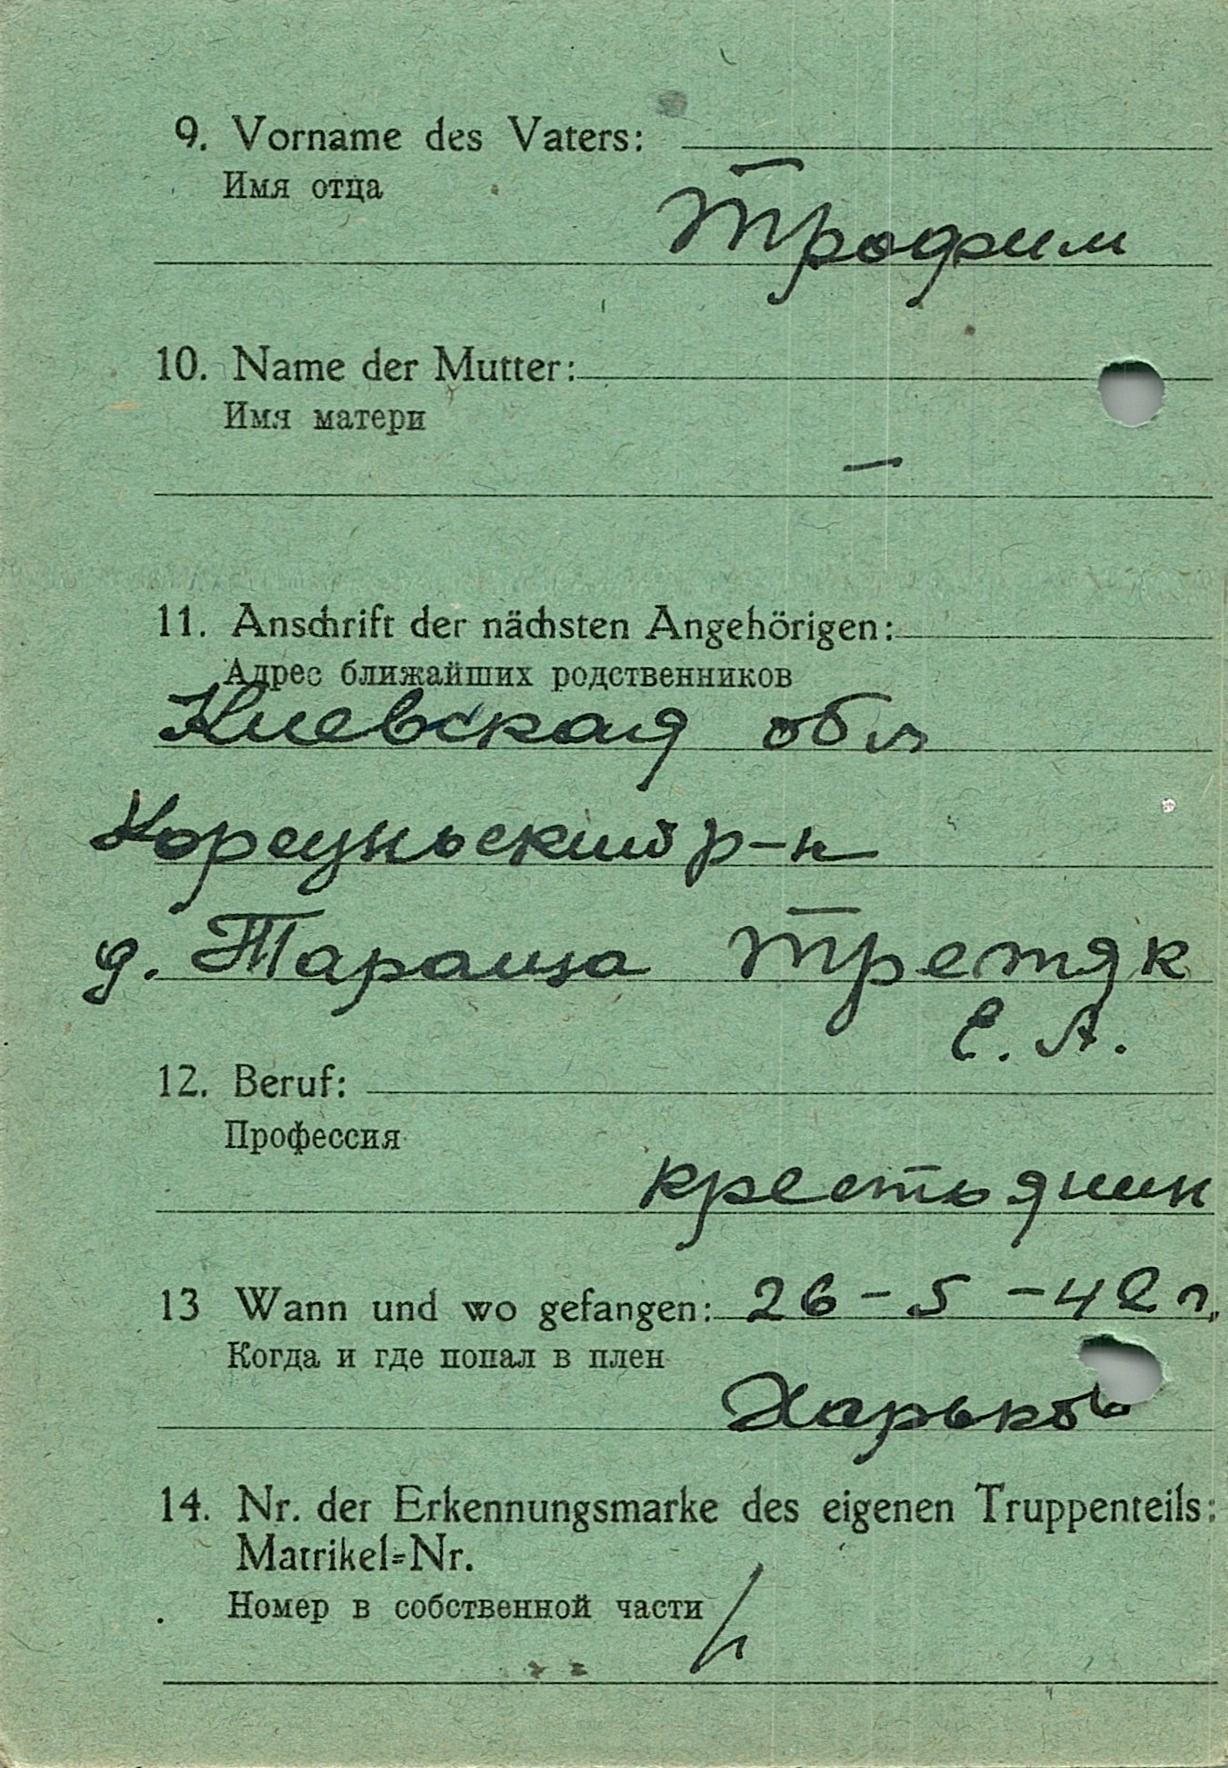 9. Vorname des Vaters:
Имя отца
Трофим
10. Name der Mutter:
Имя матери
—
11. Anschrift der nächsten Angehörigen:
Адрес ближайших родственников
Киевская обл
Корсуньский р-н
д. Тараща Третяк
Е. А.
12. Beruf:
Профессия
крестьянин
13 Wann und wo gefangen: 26-5-42 г.
Когда и где попал в плен
Харьков
14. Nr. der Erkennungsmarke des eigenen Truppenteils:
Matrikel=Nr.
Номер в собственной части